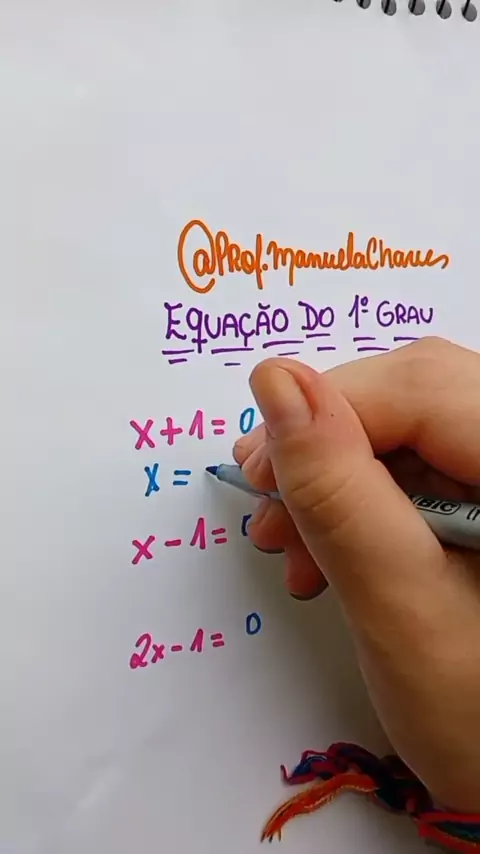 @Prof.ManuelaChaves
EQUAÇÃO DO 1º GRAU
x+1= 0
x =
x-1=
2x-1= 0
BIC